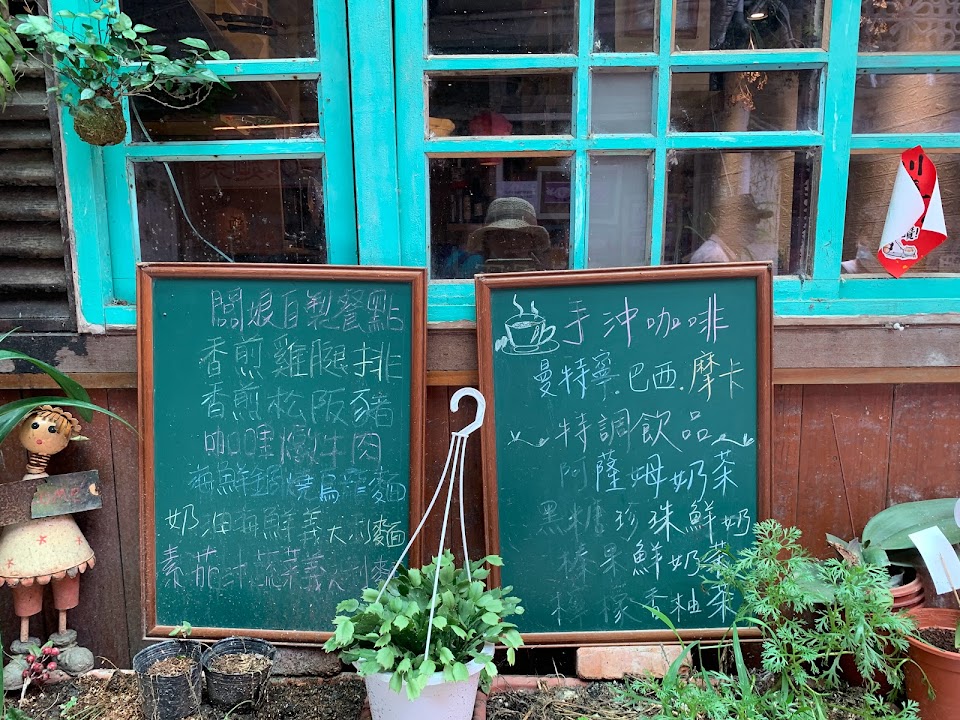 闆娘自製餐點
香煎雞腿排
香煎松阪豬
咖哩燉牛肉
海鮮鍋燒烏龍麵
奶油海鮮義大利麵
素茄汁蔬菜義大利麵
手沖咖啡
曼特寧.巴西.摩卡
特調飲品
阿薩姆奶茶
黑糖珍珠鮮奶
榛果鮮奶茶
檸檬香柚茶